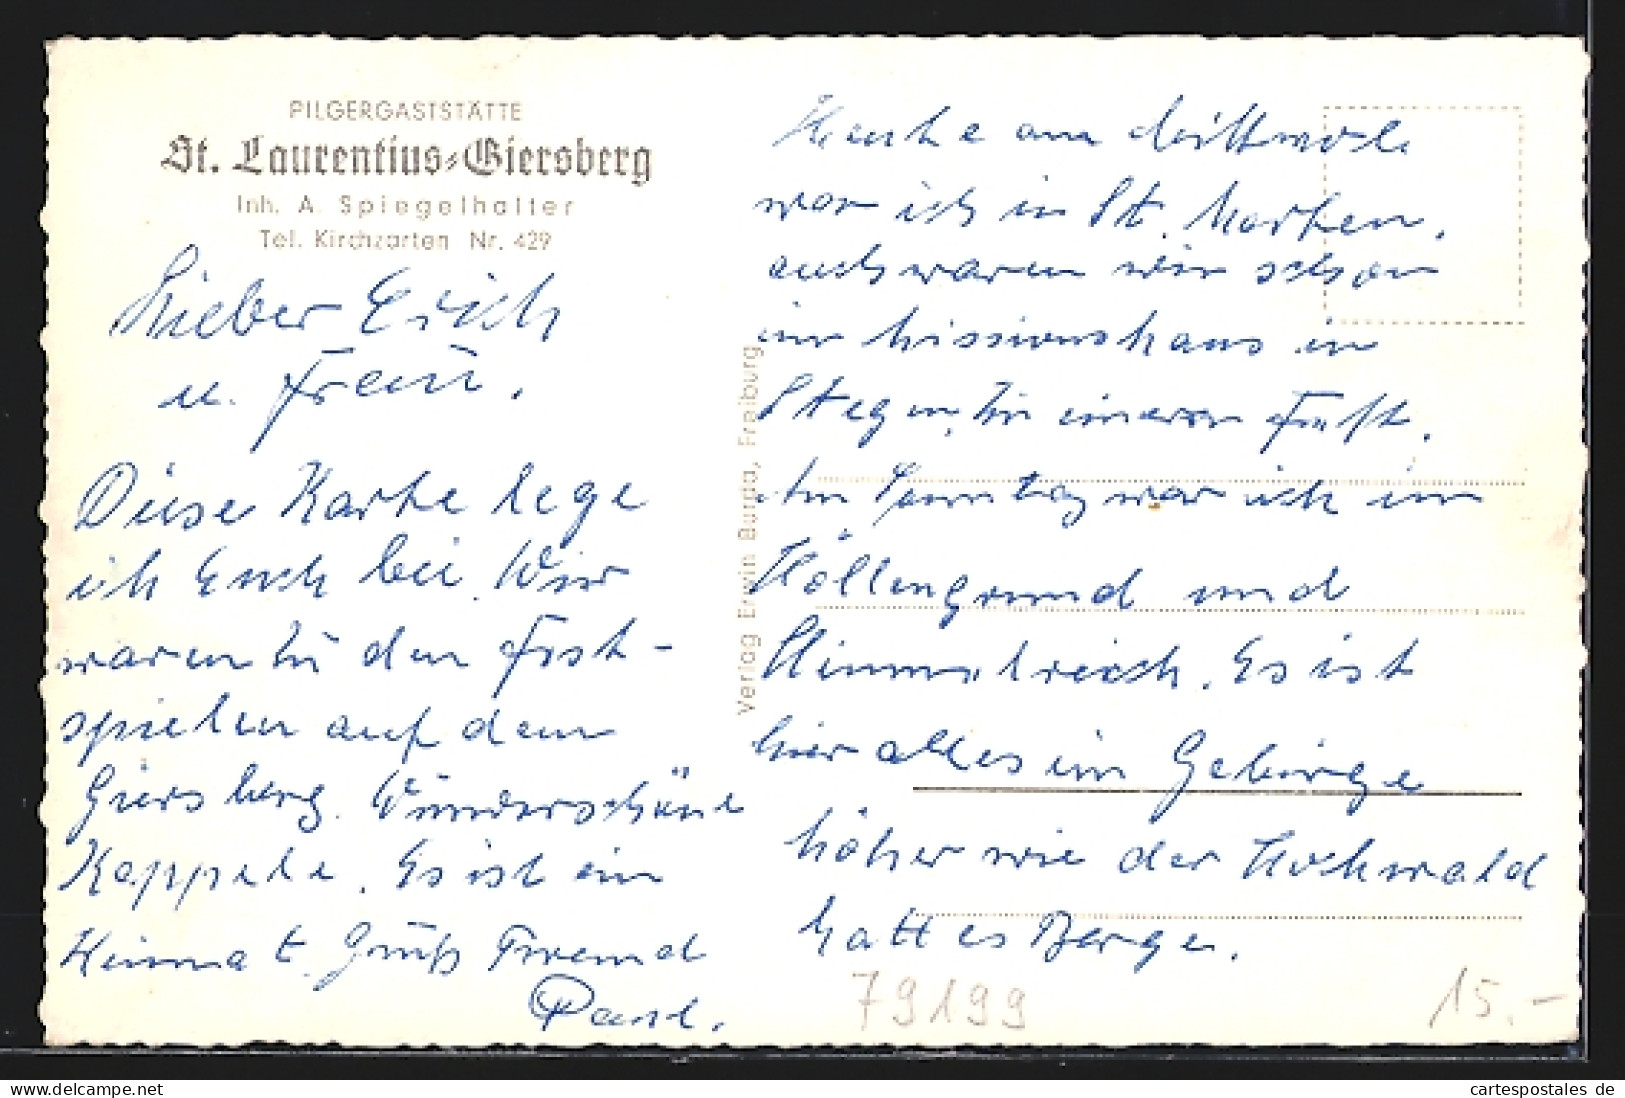 PILGERGASTSTÄTTE
St. Laurentius-Giersberg
Inh. A. Spiegelhalter
Tel. Kirchzarten Nr. 429
Lieber Erich
u. Frau,
Diese Karte lege
ich Euch bei. Wir
waren zu den Fest-
spielen auf dem
Giersberg. Wunderschöne
Kappele. Es ist ein
Heimat. Gruß Freund
Paul.
Verlag Erwin Burda, Freiburg
Heute am Mittwoch
war ich in St. Märgen,
auch waren wir schon
im Missionshaus in
Stegen,
Am Sonntag war ich im
Höllengrund und
Himmelreich. Es ist
hier alles im Gebirge
höher wie der Hochwald
hattes Berge.
79199
15.-
cartespostales de
delcampe.net